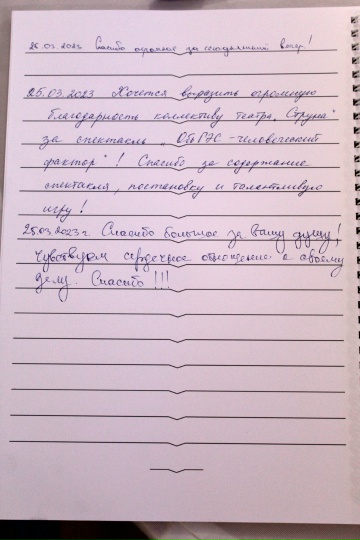 25.03.2023 Спасибо огромное за сегодняшний вечер!
25.03.2023 Хочется выразить огромную
благодарность коллективу театра „Струна“
за спектакль „ОбГЭС - человеческий
фактор“! Спасибо за содержание
спектакля, постановку и талантливую
игру!
25.03.2023 г Спасибо большое за вашу душу!
Чувствуем сердечное отношение к своему
делу. Спасибо!!!